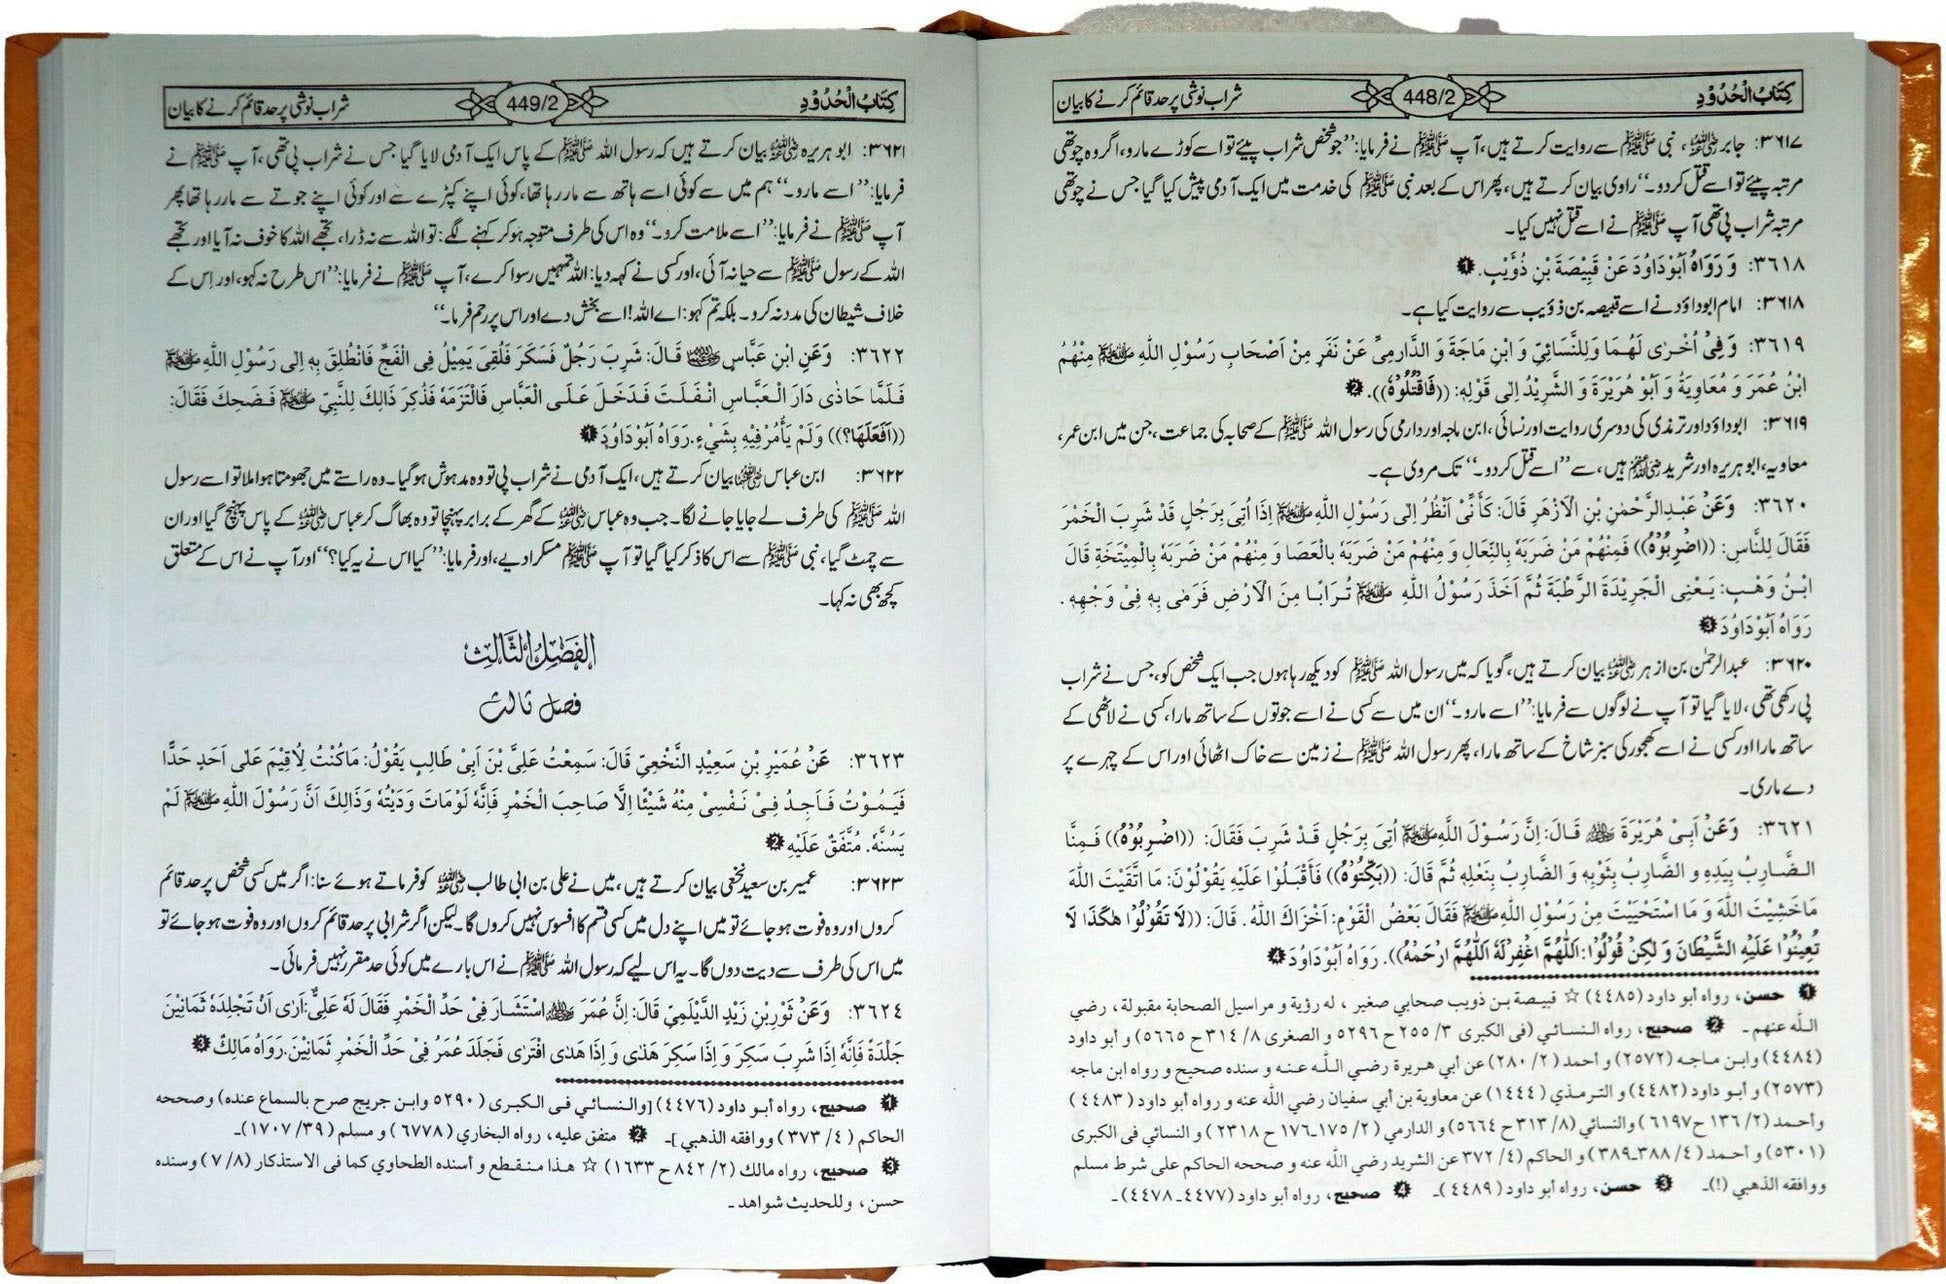 کِتَابُ الْحُدُوْدِ 448/2 شراب نوشی پر حد قائم کرنے کا بیان
۳۶۱۷: جابر ؓ، نبی ﷺ سے روایت کرتے ہیں، آپ ﷺ نے فرمایا: ’’جو شخص شراب پیئے تو اسے کوڑے مارو، اگر وہ چوتھی
مرتبہ پیئے تو اسے قتل کر دو۔‘‘ راوی بیان کرتے ہیں، پھر اس کے بعد نبی ﷺ کی خدمت میں ایک آدمی پیش کیا گیا جس نے چوتھی
مرتبہ شراب پی تھی آپ ﷺ نے اسے قتل نہیں کیا۔
۳۶۱۸: وَرَوَاهُ اَبُوْدَاوُدَ عَنْ قَبِيْصَةَ بْنِ ذُؤَيْبٍ. ❶
۳۶۱۸: امام ابوداؤد نے اسے قبیصہ بن ذؤیب سے روایت کیا ہے۔
۳۶۱۹: وَفِيْ اُخْرٰى لَهُمَا وَلِلنَّسَائِيِّ وَ ابْنِ مَاجَةَ وَ الدَّارِمِيِّ عَنْ نَفَرٍ مِنْ اَصْحَابِ رَسُوْلِ اللهِ ﷺ مِنْهُمُ
ابْنُ عُمَرَ وَ مُعَاوِيَةُ وَ اَبُوْ هُرَيْرَةَ وَ الشَّرِيْدُ اِلٰى قَوْلِهٖ: ((فَاقْتُلُوْهُ)). ❷
۳۶۱۹: ابوداؤد اور ترمذی کی دوسری روایت اور نسائی، ابن ماجہ اور دارمی کی رسول اللہ ﷺ کے صحابہ کی جماعت، جن میں ابن عمر،
معاویہ، ابو ہریرہ اور شرید ؓ ہیں، سے ’’اسے قتل کر دو۔‘‘ تک مروی ہے۔
۳۶۲۰: وَعَنْ عَبْدِالرَّحْمٰنِ بْنِ الْاَزْهَرِ قَالَ: كَأَنِّيْ اَنْظُرُ اِلٰى رَسُوْلِ اللّٰهِ ﷺ اِذَا اُتِيَ بِرَجُلٍ قَدْ شَرِبَ الْخَمْرَ
فَقَالَ لِلنَّاسِ: ((اضْرِبُوْهُ)) فَمِنْهُمْ مَنْ ضَرَبَهٗ بِالنِّعَالِ وَ مِنْهُمْ مَنْ ضَرَبَهٗ بِالْعَصَا وَ مِنْهُمْ مَنْ ضَرَبَهٗ بِالْمِيْتَخَةِ قَالَ
ابْنُ وَهْبٍ: يَعْنِى الْجَرِيْدَةَ الرَّطْبَةَ ثُمَّ اَخَذَ رَسُوْلُ اللّٰهِ ﷺ تُرَابًا مِنَ الْاَرْضِ فَرَمٰى بِهٖ فِيْ وَجْهِهٖ.
رَوَاهُ اَبُوْدَاوُدَ ❸
۳۶۲۰: عبدالرحمٰن بن ازہر ؓ بیان کرتے ہیں، گویا کہ میں رسول اللہ ﷺ کو دیکھ رہا ہوں جب ایک شخص کو، جس نے شراب
پی رکھی تھی، لایا گیا تو آپ نے لوگوں سے فرمایا: ’’اسے مارو۔‘‘ ان میں سے کسی نے اسے جوتوں کے ساتھ مارا، کسی نے لاٹھی کے
ساتھ مارا اور کسی نے اسے کھجور کی سبز شاخ کے ساتھ مارا، پھر رسول اللہ ﷺ نے زمین سے خاک اٹھائی اور اس کے چہرے پر
دے ماری۔
۳۶۲۱: وَعَنْ اَبِيْ هُرَيْرَةَ ؓ قَالَ: اِنَّ رَسُوْلَ اللَّهِ ﷺ اُتِيَ بِرَجُلٍ قَدْ شَرِبَ فَقَالَ: ((اضْرِبُوْهُ)) فَمِنَّا
الضَّارِبُ بِيَدِهٖ وَ الضَّارِبُ بِثَوْبِهٖ وَ الضَّارِبُ بِنَعْلِهٖ ثُمَّ قَالَ: ((بَكِّتُوْهُ)) فَأَقْبَلُوْا عَلَيْهِ يَقُوْلُوْنَ: مَا اتَّقَيْتَ اللّٰهَ
مَاخَشِيْتَ اللّٰهَ وَ مَا اسْتَحْيَيْتَ مِنْ رَسُوْلِ اللّٰهِ ﷺ فَقَالَ بَعْضُ الْقَوْمِ: اَخْزَاكَ اللّٰهُ. قَالَ: ((لَا تَقُوْلُوْا هٰكَذَا لَا
تُعِيْنُوْا عَلَيْهِ الشَّيْطَانَ وَ لٰكِنْ قُوْلُوْا: اَللّٰهُمَّ اغْفِرْلَهٗ اَللّٰهُمَّ ارْحَمْهُ)). رَوَاهُ اَبُوْدَاوُدَ ❹
❶ حسن، رواه أبو داود (٤٤٨٥) ☆ قبيصة بن ذويب صحابي صغير، له رؤية و مراسيل الصحابة مقبولة، رضي
الله عنهم۔ ❷ صحيح، رواه النسائي (فى الكبرى ٣/ ٢٥٥ ح ٥٢٩٦ و الصغرى ٨/ ٣١٤ ح ٥٦٦٥) و أبو داود
(٤٤٨٤) وابن ماجه (٢٥٧٢) و أحمد (٢/ ٢٨٠) عن أبي هريرة رضي الله عنه و سنده صحيح و رواه ابن ماجه
(٢٥٧٣) و أبو داود (٤٤٨٢) و الترمذي (١٤٤٤) عن معاوية بن أبي سفيان رضي الله عنه و رواه أبو داود (٤٤٨٣)
وأحمد (٢/ ١٣٦ ح ٦١٩٧) والنسائي (٨/ ٣١٣ ح ٥٦٦٤) و الدارمي (٢/ ١٧٥-١٧٦ ح ٢٣١٨) و النسائي فى الكبرى
(٥٣٠١) و أحمد (٤/ ٣٨٨-٣٨٩) و الحاكم (٤/ ٣٧٢ عن الشريد رضي الله عنه و صححه الحاكم على شرط مسلم
ووافقه الذهبي (!)۔ ❸ حسن، رواه أبو داود (٤٤٨٩)۔ ❹ صحيح، رواه أبو داود (٤٤٧٧-٤٤٧٨)۔
کِتَابُ الْحُدُوْدِ 449/2 شراب نوشی پر حد قائم کرنے کا بیان
۳۶۲۱: ابو ہریرہ ؓ بیان کرتے ہیں کہ رسول اللہ ﷺ کے پاس ایک آدمی لایا گیا جس نے شراب پی تھی، آپ ﷺ نے
فرمایا: ’’اسے مارو۔‘‘ ہم میں سے کوئی اسے ہاتھ سے مار رہا تھا، کوئی اپنے کپڑے سے اور کوئی اپنے جوتے سے مار رہا تھا پھر
آپ ﷺ نے فرمایا: ’’اسے ملامت کرو۔‘‘ وہ اس کی طرف متوجہ ہو کر کہنے لگے: تو اللہ سے نہ ڈرا، تجھے اللہ کا خوف نہ آیا اور تجھے
اللہ کے رسول ﷺ سے حیا نہ آئی، اور کسی نے کہہ دیا: اللہ تمہیں رسوا کرے، آپ ﷺ نے فرمایا: ’’اس طرح نہ کہو، اور اس کے
خلاف شیطان کی مدد نہ کرو۔ بلکہ تم کہو: اے اللہ! اسے بخش دے اور اس پر رحم فرما۔‘‘
۳۶۲۲: وَعَنِ ابْنِ عَبَّاسٍ ؓ قَالَ: شَرِبَ رَجُلٌ فَسَكَرَ فَلُقِيَ يَمِيْلُ فِى الْفَجِّ فَانْطُلِقَ بِهٖ اِلٰى رَسُوْلِ اللّٰهِ ﷺ
فَلَمَّا حَاذٰى دَارَ الْعَبَّاسِ انْفَلَتَ فَدَخَلَ عَلَى الْعَبَّاسِ فَالْتَزَمَهٗ فَذُكِرَ ذَالِكَ لِلنَّبِيِّ ﷺ فَضَحِكَ فَقَالَ:
((اَفَعَلَهَا؟)) وَلَمْ يَأْمُرْ فِيْهِ بِشَيْءٍ. رَوَاهُ اَبُوْدَاوُدَ ❶
۳۶۲۲: ابن عباس ؓ بیان کرتے ہیں، ایک آدمی نے شراب پی تو وہ مدہوش ہو گیا۔ وہ راستے میں جھومتا ہوا ملا تو اسے رسول
اللہ ﷺ کی طرف لے جایا جانے لگا۔ جب وہ عباس ؓ کے گھر کے برابر پہنچا تو وہ بھاگ کر عباس ؓ کے پاس پہنچ گیا اور ان
سے چمٹ گیا، نبی ﷺ سے اس کا ذکر کیا گیا تو آپ ﷺ مسکرا دیے، اور فرمایا: ’’کیا اس نے یہ کیا؟‘‘ اور آپ نے اس کے متعلق
کچھ بھی نہ کہا۔
الْفَصْلُ الثَّالِثُ
فصل ثالث
۳۶۲۳: عَنْ عُمَيْرِ بْنِ سَعِيْدٍ النَّخْعِيِّ قَالَ: سَمِعْتُ عَلِيَّ بْنَ اَبِيْ طَالِبٍ يَقُوْلُ: مَاكُنْتُ لِاُقِيْمَ عَلٰى اَحَدٍ حَدًّا
فَيَمُوْتُ فَاَجِدُ فِيْ نَفْسِيْ مِنْهُ شَيْئًا اِلَّا صَاحِبَ الْخَمْرِ فَاِنَّهٗ لَوْمَاتَ وَدَيْتُهٗ وَذَالِكَ اَنَّ رَسُوْلَ اللّٰهِ ﷺ لَمْ
يَسُنَّهٗ. مُتَّفَقٌ عَلَيْهِ ❷
۳۶۲۳: عمیر بن سعید نخعی بیان کرتے ہیں، میں نے علی بن ابی طالب ؓ کو فرماتے ہوئے سنا: اگر میں کسی شخص پر حد قائم
کروں اور وہ فوت ہو جائے تو میں اپنے دل میں کسی قسم کا افسوس نہیں کروں گا۔ لیکن اگر شرابی پر حد قائم کروں اور وہ فوت ہو جائے تو
میں اس کی طرف سے دیت دوں گا۔ یہ اس لیے کہ رسول اللہ ﷺ نے اس بارے میں کوئی حد مقرر نہیں فرمائی۔
۳۶۲۴: وَعَنْ ثَوْرِ بْنِ زَيْدِ الدَّيْلَمِيِّ قَالَ: اِنَّ عُمَرَ ؓ اسْتَشَارَ فِيْ حَدِّ الْخَمْرِ فَقَالَ لَهٗ عَلِيٌّ: اَرٰى اَنْ تَجْلِدَهٗ ثَمَانِيْنَ
جَلْدَةً فَاِنَّهٗ اِذَا شَرِبَ سَكِرَ وَ اِذَا سَكِرَ هَذٰى وَ اِذَا هَذٰى افْتَرٰى فَجَلَدَ عُمَرُ فِيْ حَدِّ الْخَمْرِ ثَمَانِيْنَ. رَوَاهُ مَالِكٌ ❸
❶ صحيح، رواه أبو داود (٤٤٧٦) [والنسائي فى الكبرى (٥٢٩٠ وابن جريج صرح بالسماع عنده) وصححه
الحاكم (٤/ ٣٧٣) ووافقه الذهبي]۔ ❷ متفق عليه، رواه البخاري (٦٧٧٨) و مسلم (٣٩/ ١٧٠٧)۔
❸ صحيح، رواه مالك (٢/ ٨٤٢ ح ١٦٣٣) ☆ هذا منقطع و أسنده الطحاوي كما فى الاستذكار (٨/ ٧) وسنده
حسن، وللحديث شواهد۔